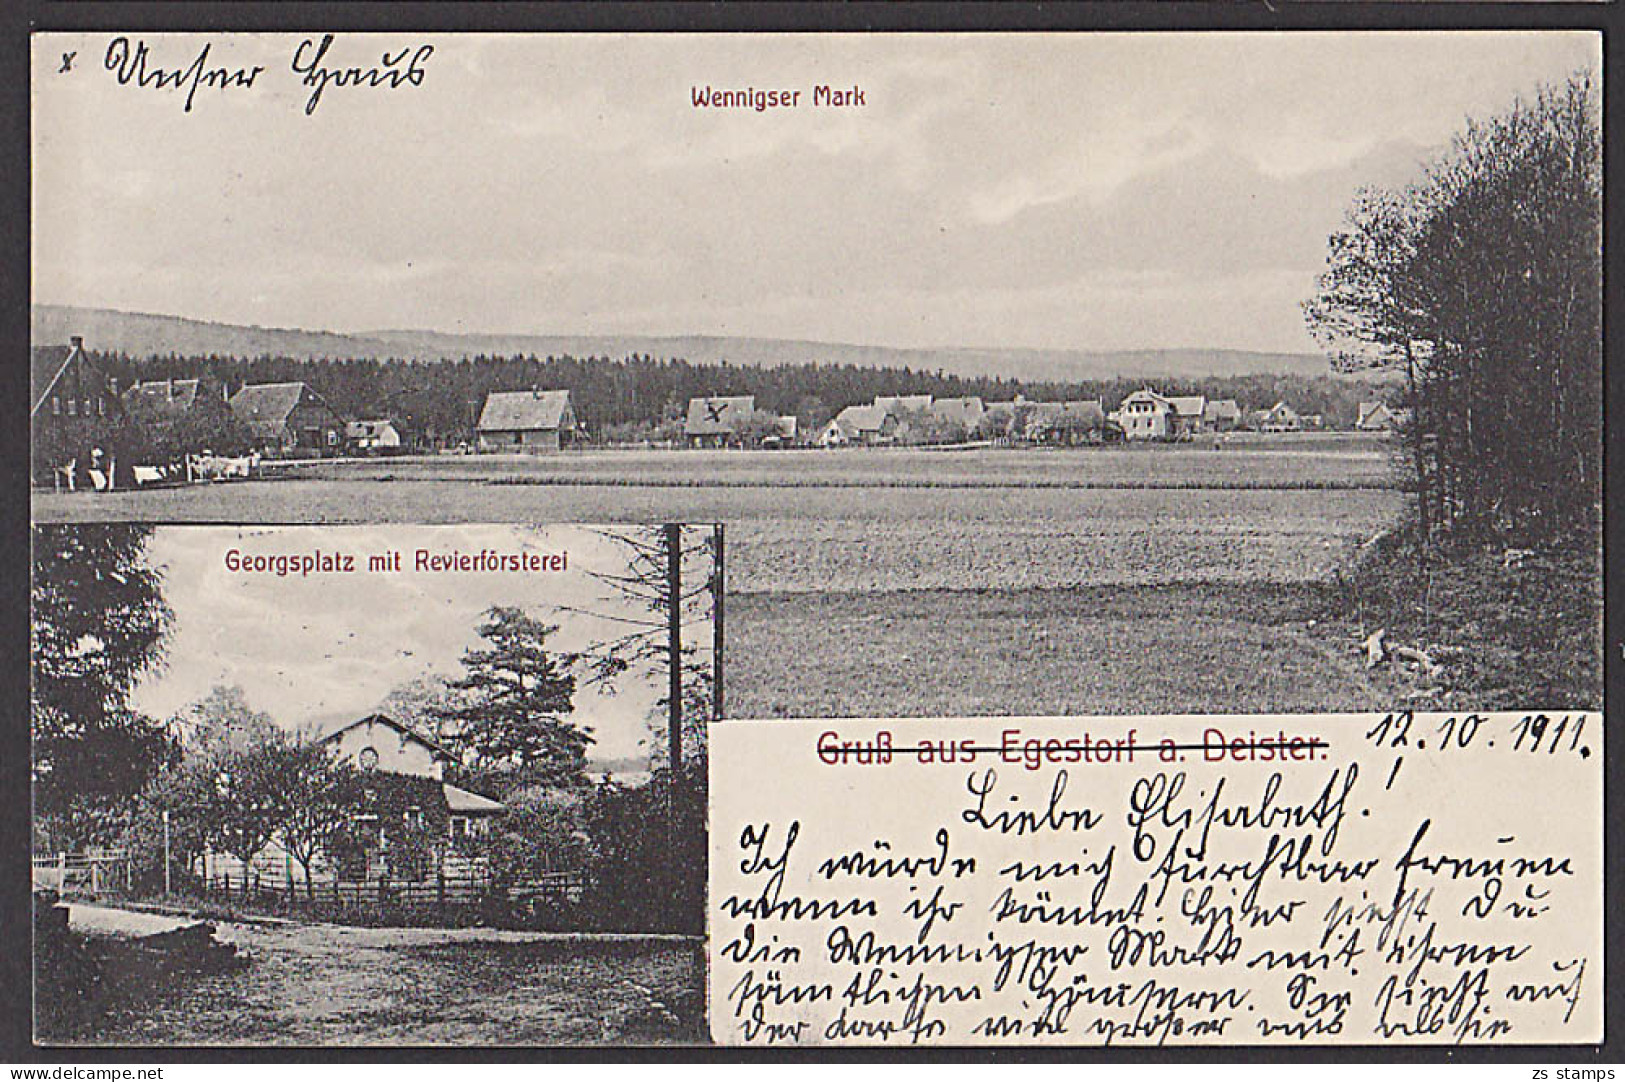 x Unser Haus
Wennigser Mark
Georgsplatz mit Revierförsterei
Gruß aus Egestorf a. Deister.
12.10.1911.
Liebe Elisabeth!
Ich würde mich furchtbar freuen
wenn ihr kämet. Hier siehst Du
die Wennigser Mark mit ihren
sämtlichen Häusern. Sie sieht auf
der Karte viel größer aus als sie
Kalenderblatt.de
zs stamps